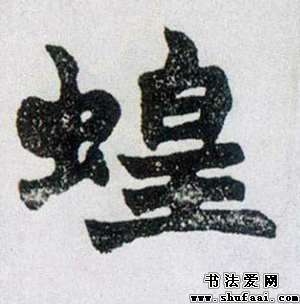 蝗
书法爱网
www.shufaai.com